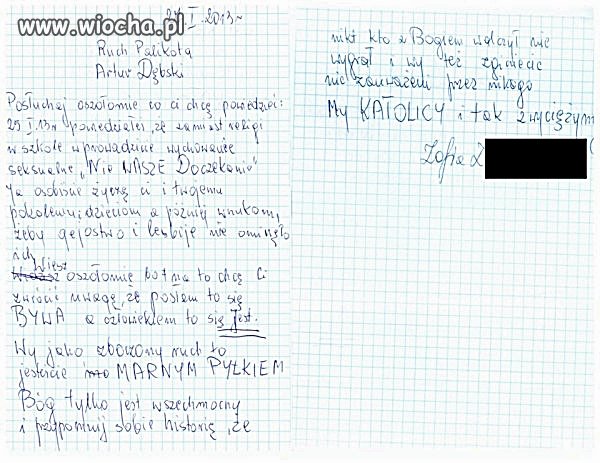 www.wiocha.pl
I.2013r
Ruch Palikota
Artur Dębski
Posłuchaj oszołomie co ci chcę powiedzieć:
25 I.13r powiedziałeś, że zamiast religi
w szkole wprowadzicie wychowanie
seksualne „Nie WASZE Doczekanie"
Ja osobiście życzę ci i twojemu
pokoleniu, dzieciom a później wnukom,
żeby gejostwo i lesbije nie ominęło
ich
Wiesz
oszołomie bo na to chcę Ci
zwrócić uwagę, że posłem to się
BYWA a człowiekiem to się Jest.
Wy jako zboczony ruch to
jesteście MARNYM PYŁKIEM
Bóg tylko jest wszechmocny
i przypomnij sobie historię, że
nikt kto z Bogiem walczył nie
wygrał i wy też zginiecie
nie zauważeni przez nikogo
My KATOLICY i tak zwyciężym
Zofia